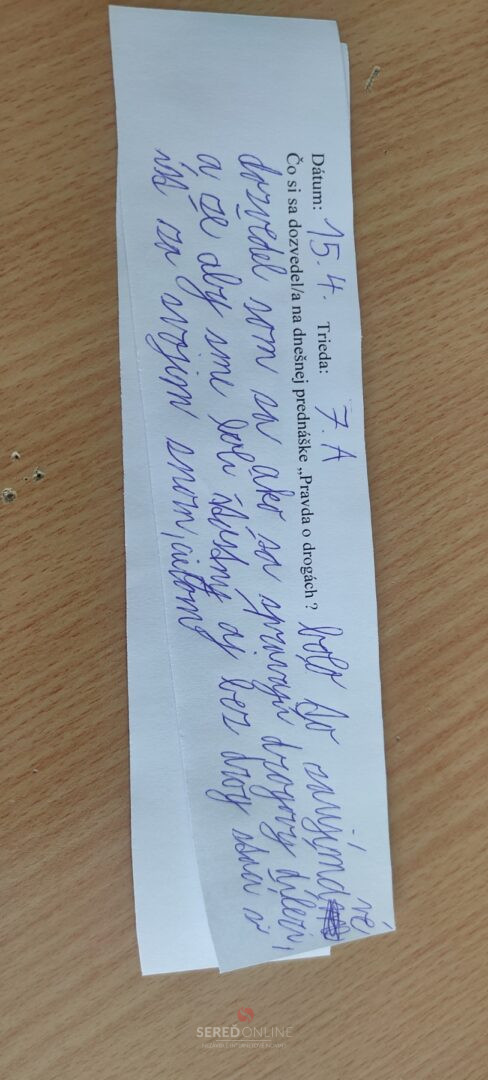 Dátum: 15. 4. Trieda: 7. A
Čo si sa dozvedel/a na dnešnej prednáške „Pravda o drogách ? bolo to zaujímavé
dozvedel som sa ako sa spravajú drogovy díleri,
a že aby sme boli štastný aj bez drog stačí
ísť za svojim snom,
SEREĎONLINE